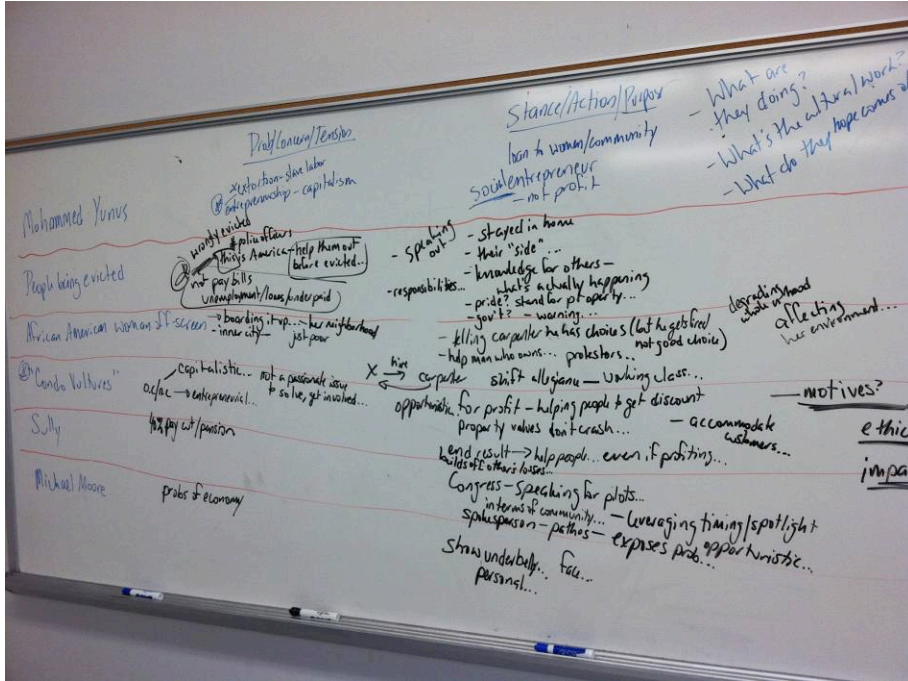 Prob/Concern/Tension
Stance/Action/Purpose
- What are
they doing?
- What's the cultural work?
- What do they hope comes of
Mohammed Yunus
extortion - slave labor
entrepreneurship - capitalism
loan to women/community
social entrepreneur
- not profit
People being evicted
wrongly evicted
police officers
this is America - help them out
before evicted...
not pay bills
unemployment/loans/underpaid
- speaking
out
- responsibilities...
- stayed in home
- their "side"...
- knowledge for others -
what's actually happening
- pride? stand for property...
- gov't? - warning...
African American woman off-screen
- boarding it up... - her neighborhood
- inner city - just poor
- telling carpenter he has choices (but he gets fired
not good choice)
- help man who owns... protestors..
degrading
whole
affecting
her environment...
"Condo Vultures"
capitalistic...
o.c/n.c → entrepreneurial...
not a passionate issue
to solve, get involved...
X hire carpenter
shift allegiance - working class...
opportunistic
for profit - helping people to get discount
property values don't crash...
- accommodate
customers...
end result → help people... even if profiting...
builds off others losses...
- motives?
ethic
impa
Sully
40% pay cut/pension
Congress - speaking for pilots...
in terms of community... - leveraging timing/spotlight
spokesperson - pathos - exposes prob... opportunistic...
Michael Moore
probs of economy
show underbelly... face...
personal...